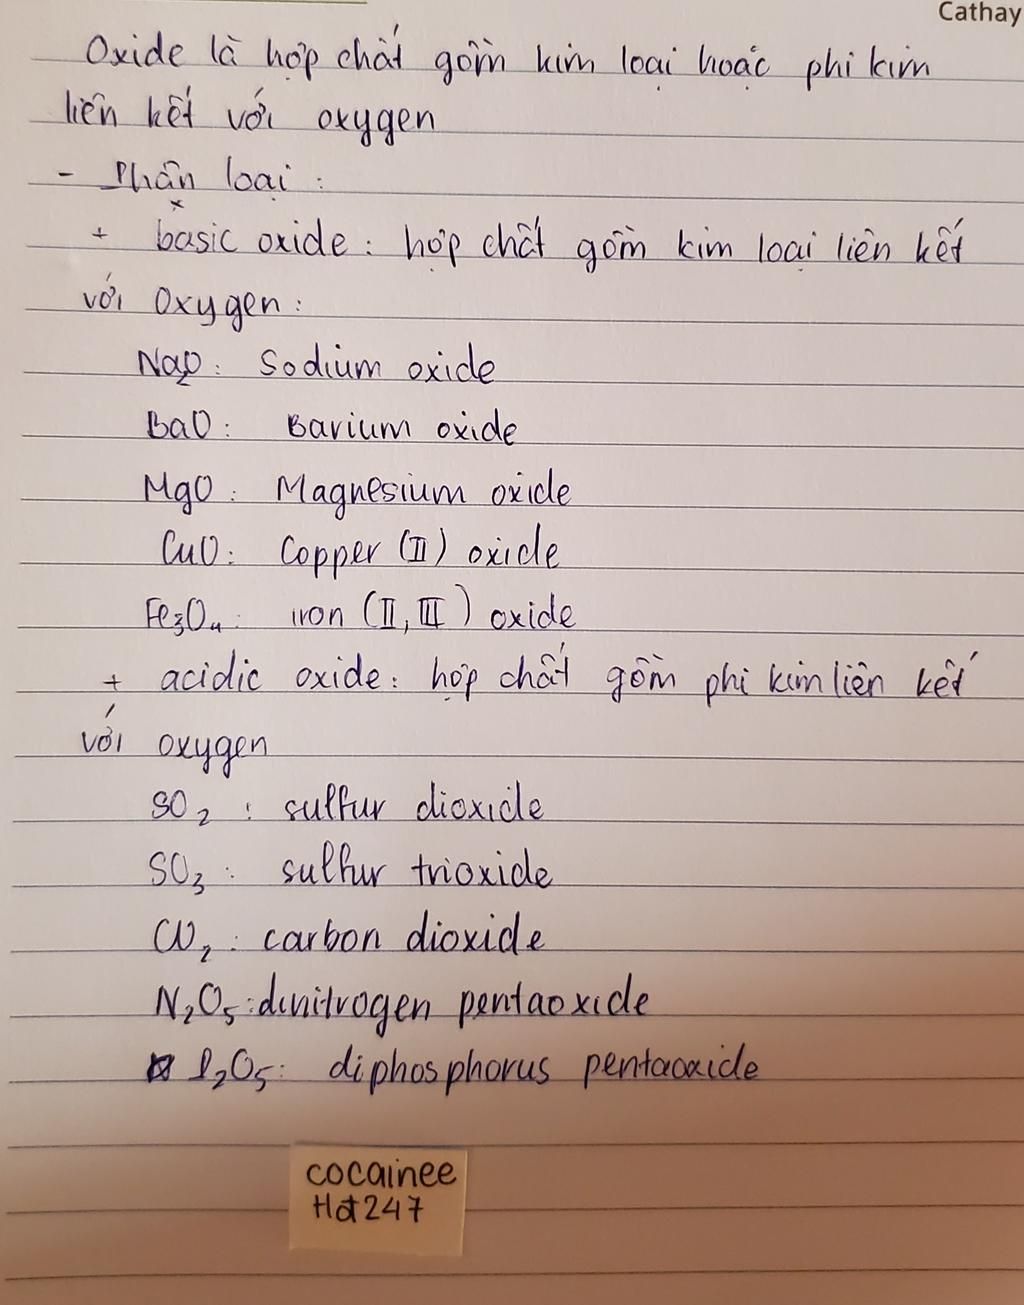 Cathay
Oxide là hợp chất gồm kim loại hoặc phi kim
liên kết với oxygen
- Phân loại :
+ basic oxide : hợp chất gồm kim loại liên kết
với oxygen :
Na2O : Sodium oxide
BaO : Barium oxide
MgO : Magnesium oxide
CuO : Copper (II) oxide
Fe3O4 : iron (II, III) oxide
+ acidic oxide : hợp chất gồm phi kim liên kết
với oxygen
SO2 : sulfur dioxide
SO3 : sulfur trioxide
CO2 : carbon dioxide
N2O5 : dinitrogen pentaoxide
P2O5 : diphosphorus pentaoxide
cocainee
Hot247